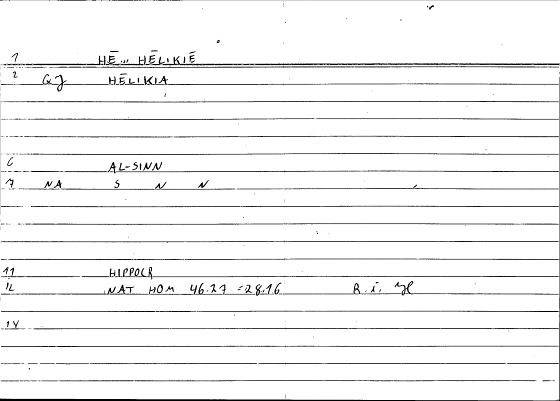 1 HĒ... HĒLIKIĒ
2 GJ HĒLIKIA
6 AL-SINN
7 NA S N N
11 HIPPOCR
12 NAT HOM 46.27 =28.16 R.i.
14